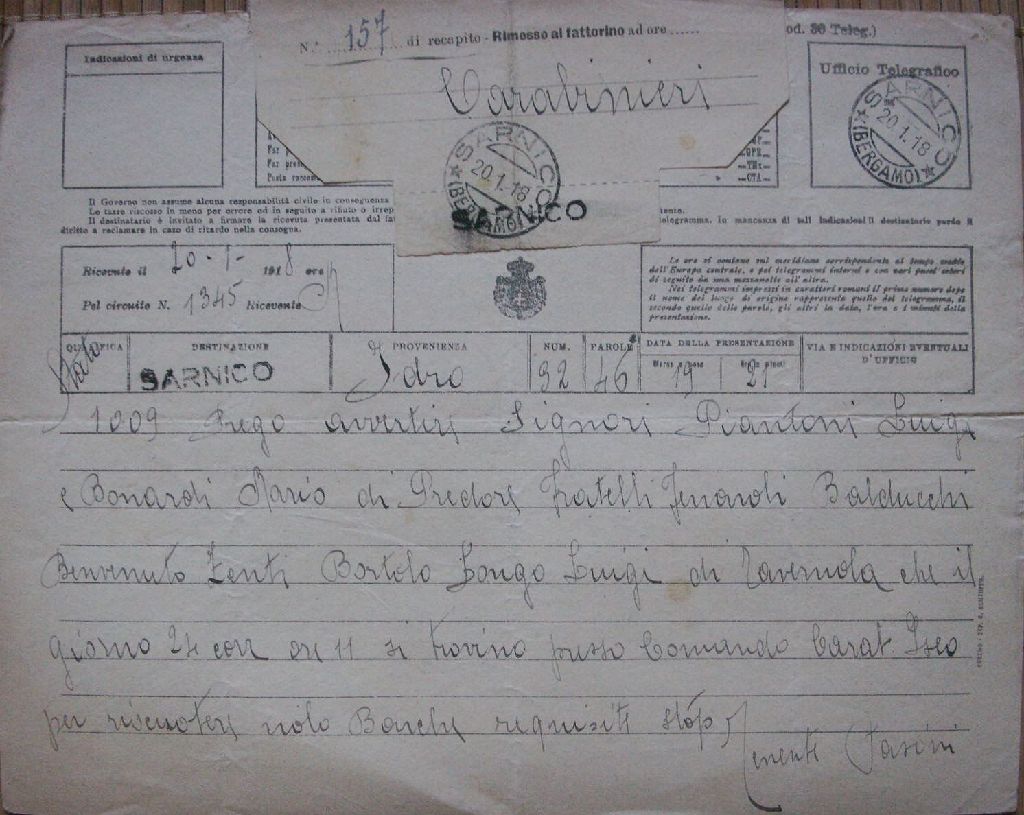 N. 157 di recapito - Rimesso al fattorino ad ore ......
Carabinieri
od. 30 Teleg.)
Indicazioni di urgenza
Ufficio Telegrafico
SARNICO
20.1.18
(BERGAMO)
SARNICO
20.1.18
(BERGAMO)
SARNICO
Il Governo non assume alcuna responsabilità civile in conseguenza
Le tasse riscosse in meno per errore od in seguito a rifiuto o irrep
Il destinatario è invitato a firmare la ricevuta presentata dal fat
telegramma. In mancanza di tali indicazioni il destinatario perde il
diritto a reclamare in caso di ritardo nella consegna.
Ricevuto il 20-1-1918 ore
Pel circuito N. 1345 Ricevente
Le ore si contano sul meridiano corrispondente al tempo medio
dell'Europa centrale, e pei telegrammi interni e con vari paesi esteri
di seguito da una mezzanotte all'altra.
Nei telegrammi impressi in caratteri romani il primo numero dopo
il nome del luogo di origine rappresenta quello del telegramma, il
secondo quello delle parole, gli altri la data, l'ora e i minuti della
presentazione.
QUALIFICA DESTINAZIONE PROVENIENZA NUM. PAROLE DATA DELLA PRESENTAZIONE VIA E INDICAZIONI EVENTUALI D'UFFICIO
Stato SARNICO Idro 92 46 19 21
1009 Prego avvertire Signori Piantoni Luigi
e Bonardi Mario di Predore fratelli Fenaroli Balducchi
Benvenuto Zenti Bortolo Longo Luigi di Tavernola che il
giorno 24 corr ore 11 si trovino presso Comando Carab. Iseo
per riscuotere nolo Barche requisite stop
Tenente Pasini